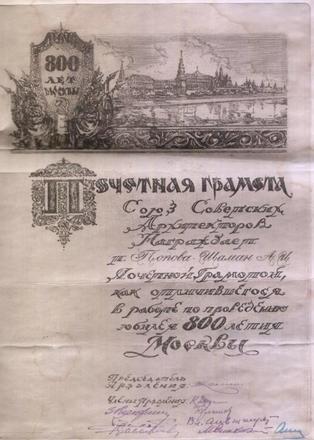 800
ЛЕТ
МОСКВЫ
ПОЧЕТНАЯ ГРАМОТА
Союз Советских
Архитекторов
Награждает
т. Попова-Шаман А.И.
Почетной Грамотой,
как отличившегося
в работе по проведению
юбилея 800 летия
Москвы
Председатель
Правления
Члены Правления